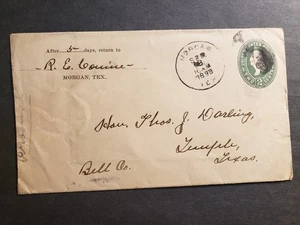 After 5 days, return to
R. E.
MORGAN, TEX.
MORGAN
SEP
1898
TEX.
Hon. Thos. J. Darling,
Temple,
Texas.
Bell Co.